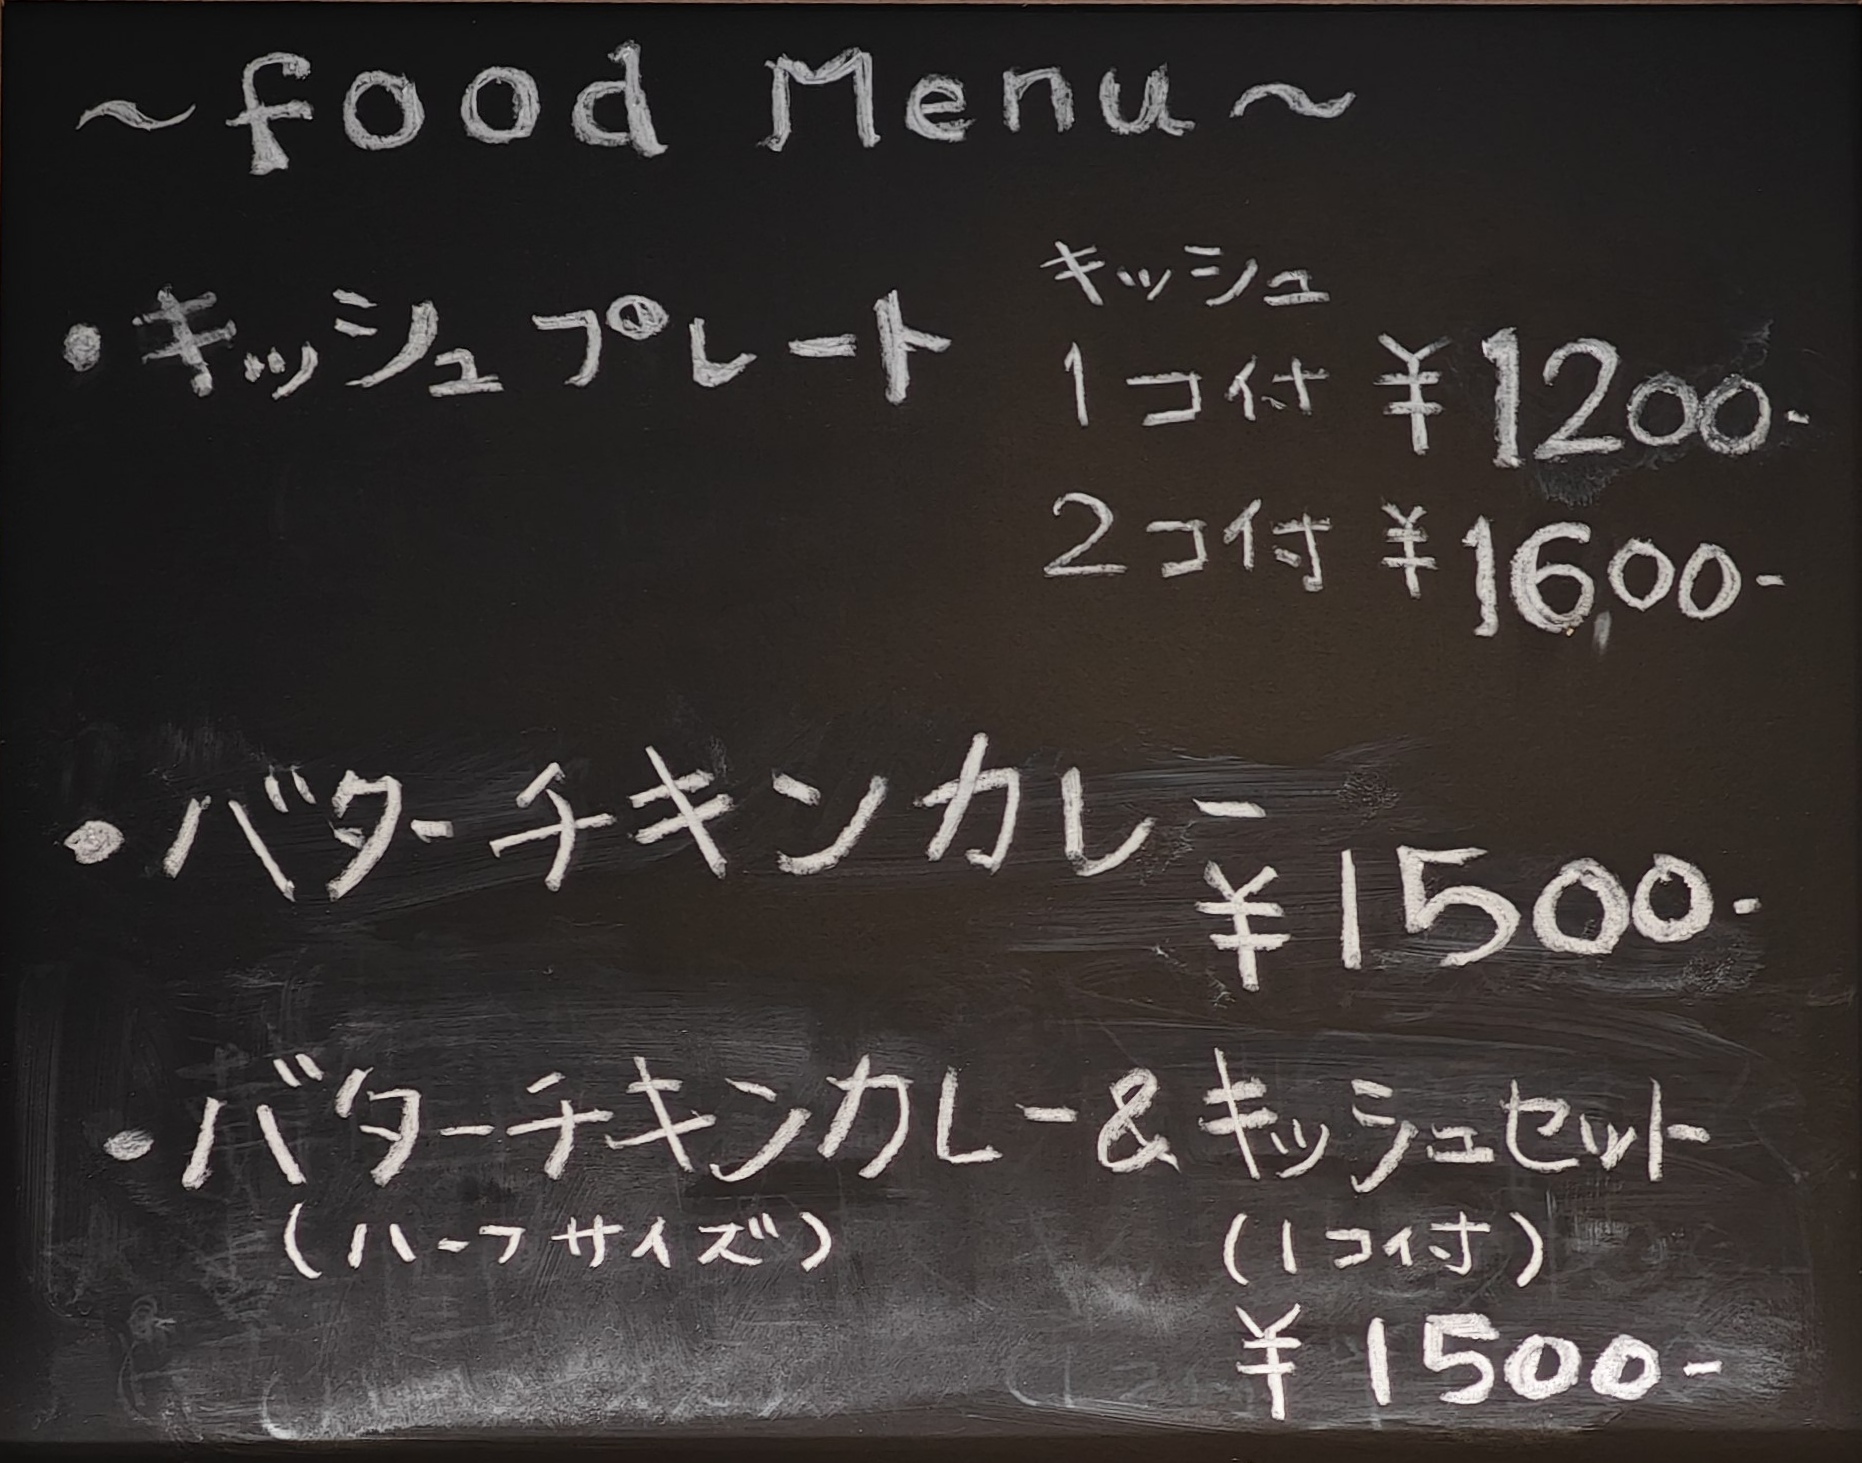 ~food Menu~
キッシュ
・キッシュプレート 1コ付 ¥1200-
2コ付 ¥1600-
・バターチキンカレー
¥1500-
・バターチキンカレー&キッシュセット
(ハーフサイズ) (1コ付)
¥1500-